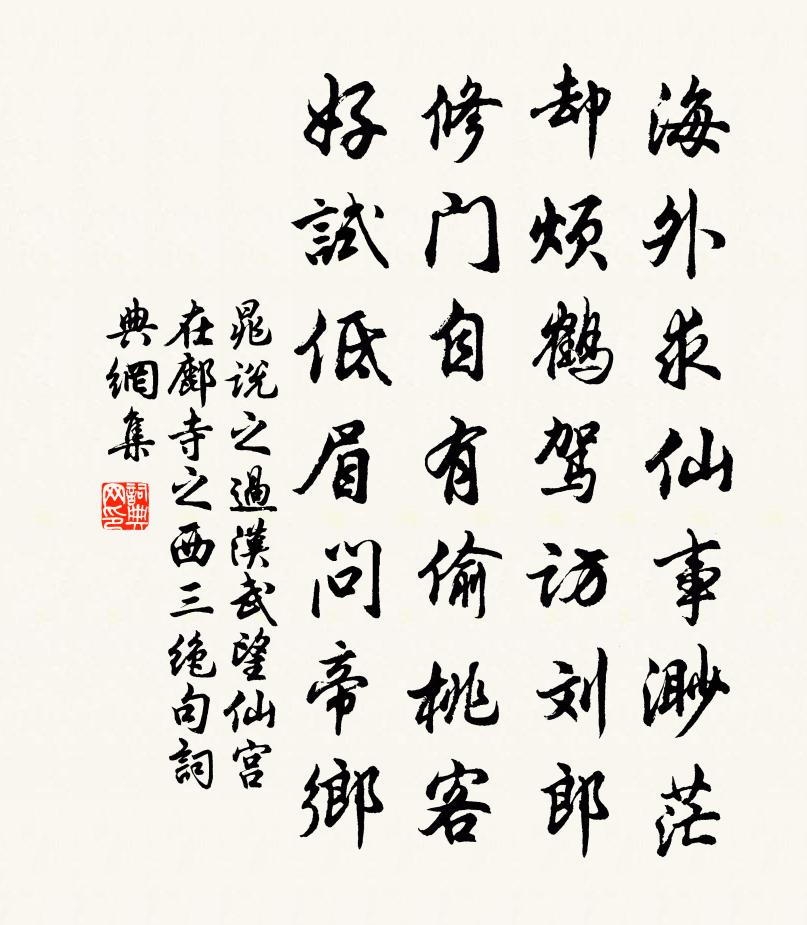 海外求仙事渺茫
却烦鹤驾访刘郎
修门自有偷桃客
好試低眉問帝鄉
晁说之過漢武望仙宫
在鄜寺之西三绝句詞
典網集
詞典
网印